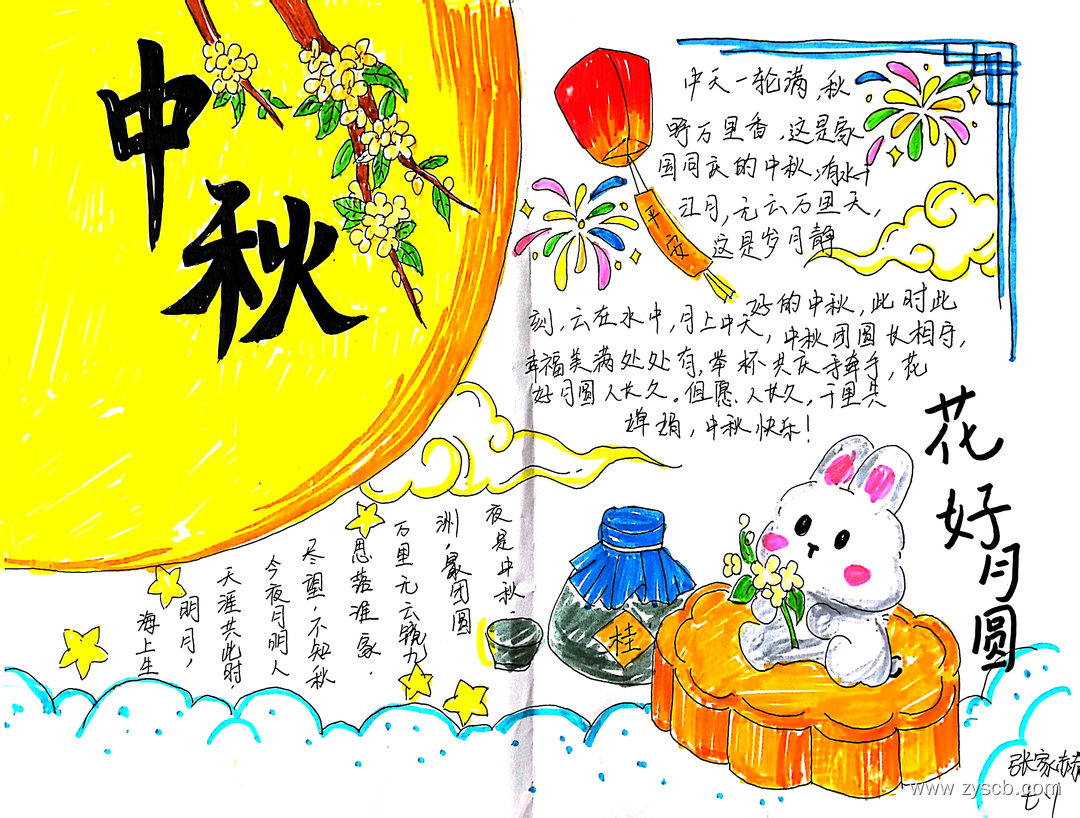 中秋
中天一轮满,秋
野万里香,这是家
国同庆的中秋,有水千
江月,无云万里天,
这是岁月静
好的中秋,此时此
刻,云在水中,月上中天,中秋团圆长相守,
幸福美满处处有,举杯共庆手牵手,花
好月圆人长久。但愿人长久,千里共
婵娟,中秋快乐!
平安
花好月圆
夜是中秋,
洲,最团圆
万里无云镜九
思落谁家,
尽望,不知秋
今夜月明人
天涯共此时,
明月,
海上生
桂
张家赫
七1
www.zyscb.com